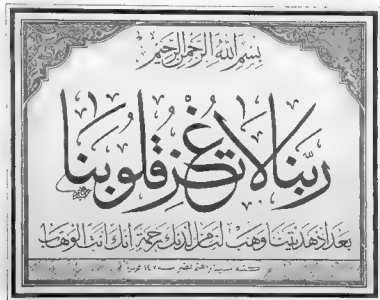 بِسْمِ اللهِ الرَّحْمٰنِ الرَّحِيمِ
رَبَّنَا لَا تُزِغْ قُلُوبَنَا
بَعْدَ اِذْ هَدَيْتَنَا وَهَبْ لَنَا مِنْ لَدُنْكَ رَحْمَةً اِنَّكَ اَنْتَ الْوَهَّابُ
كتبه سيد